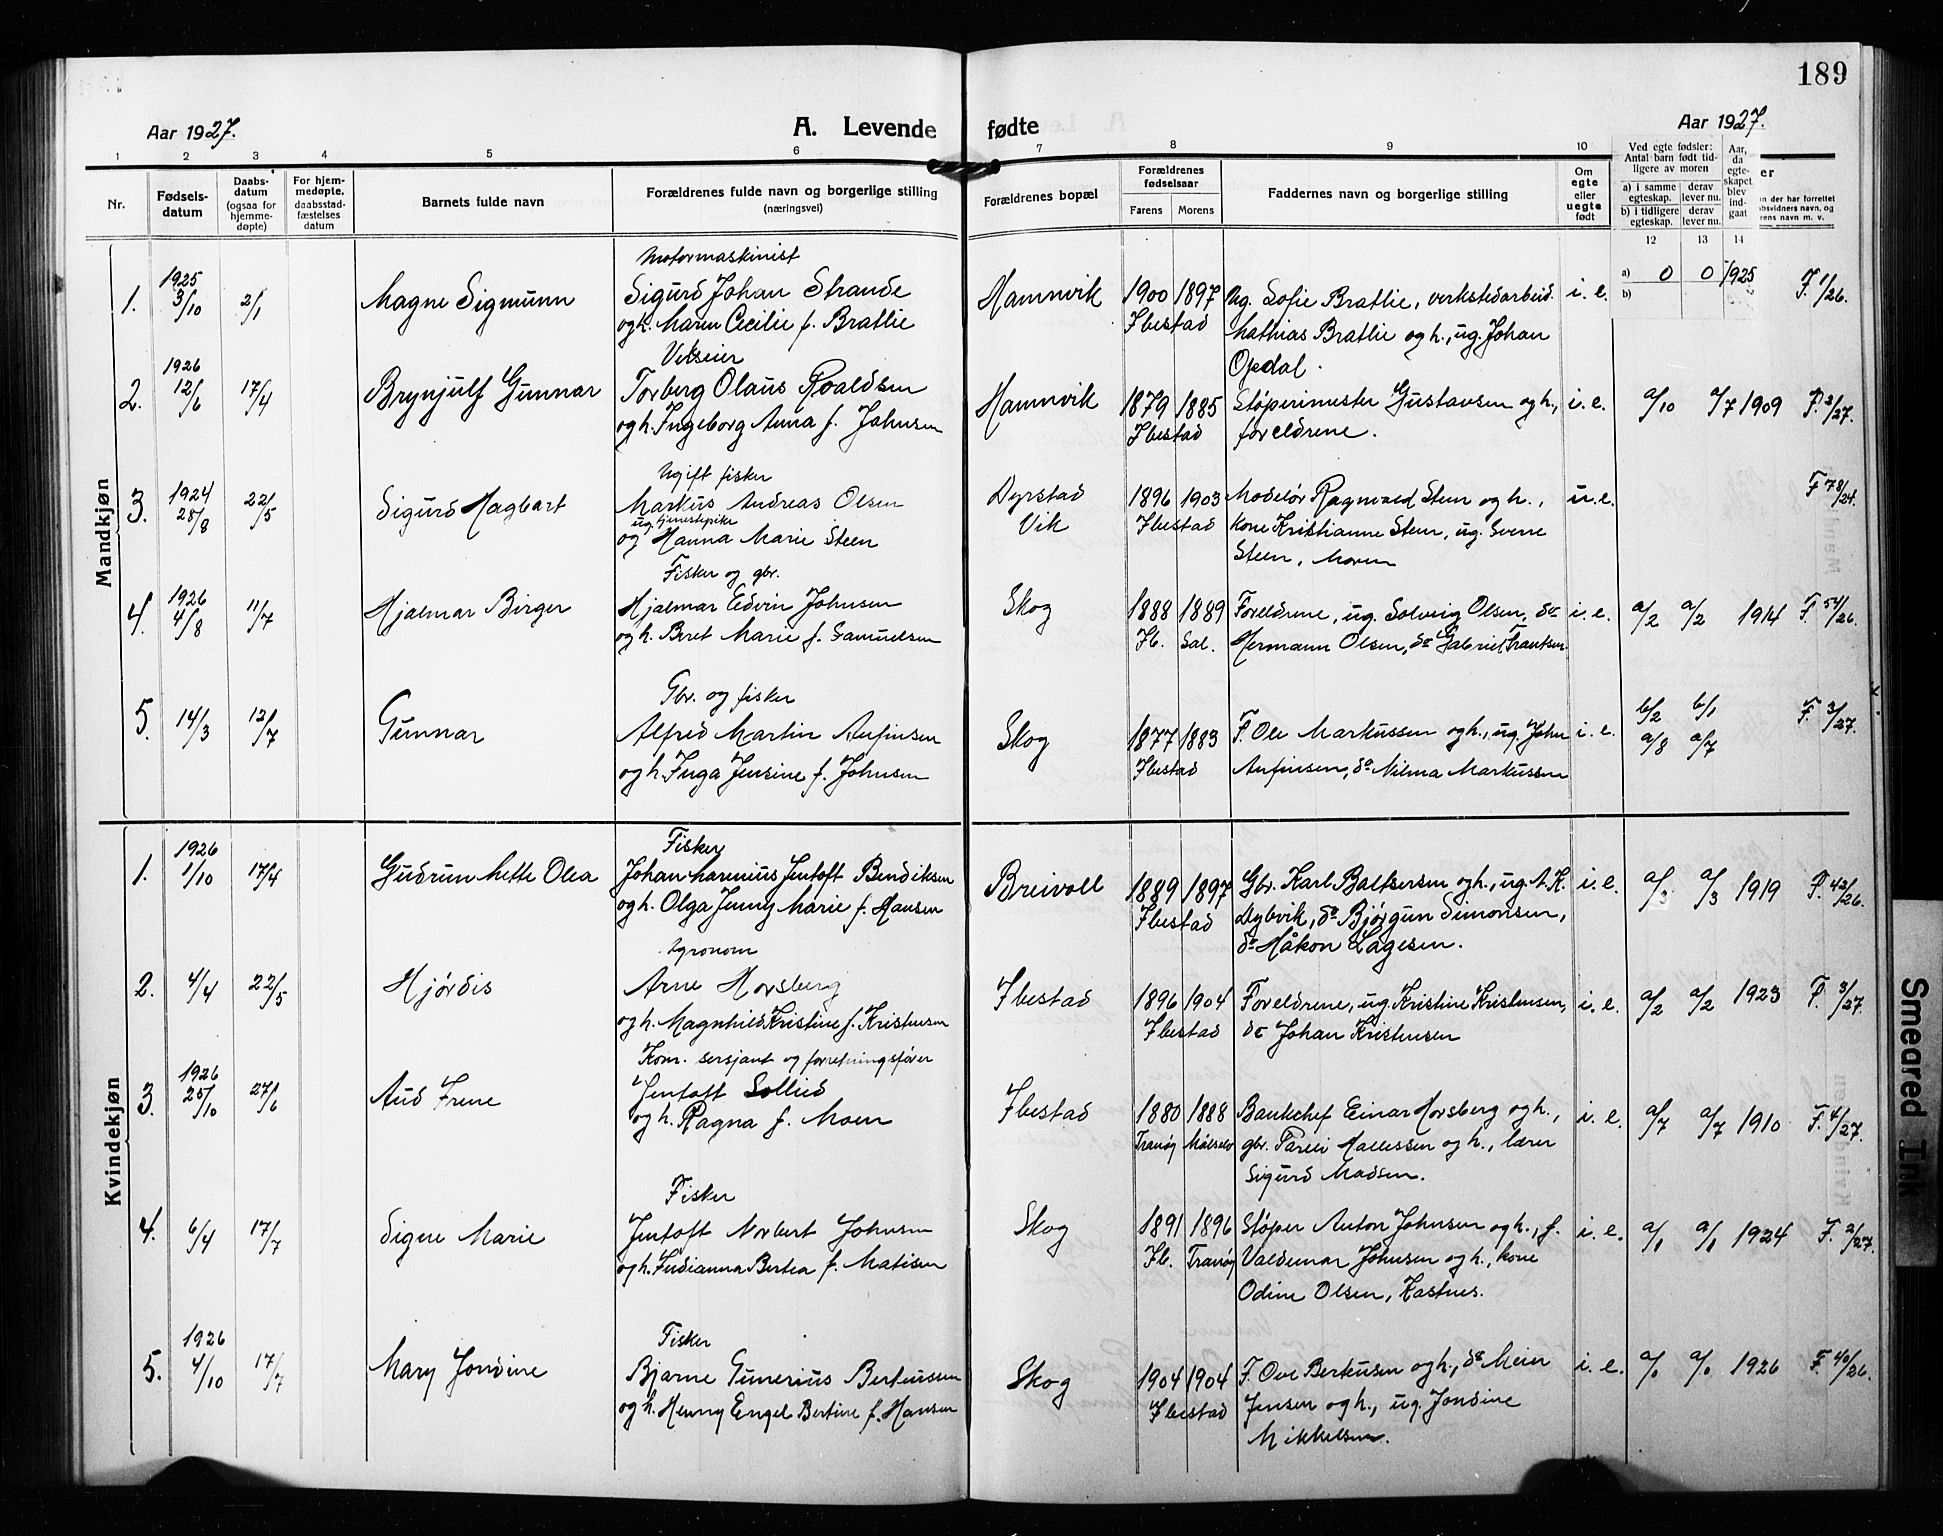 189
Aar 1927.
A. Levende fødte
Aar 1927.
1 2 3 4 5 6 7 8 9 10
Nr.
Fødsels-
datum
Daabs-
datum
(ogsaa for
hjemme-
døpte)
For hjem-
medøpte,
daabsstad-
fæstelses
datum
Barnets fulde navn
Forældrenes fulde navn og borgerlige stilling
(næringsvei)
Forældrenes bopæl
Forældrenes
fødselsaar
Farens Morens
Faddernes navn og borgerlige stilling
Om
egte
eller
uegte
født
Ved egte fødsler:
Antal barn født tid-
ligere av moren
a) i samme
egteskap.
derav
lever nu.
b) i tidligere
egteskap.
derav
lever nu.
Aar,
da
egte-
skapet
blev
ind-
gaat
12 13 14
Mandkjøn
1.
1925
3/10
2/1
Magne Sigmunn
Motormaskinist
Sigurd Johan Strande
og h. Maren Cecilie f. Bratlie
Hamnvik
1900 1897
Ibestad
Ug. Sofie Bratlie, verkstedarbeid.
Mathias Bratlie og h., ug. Johan
Opdal.
i. e.
a) 0 0 1925
b)
F. 1/26.
2.
1926
12/6
17/4
Brynjulf Gunnar
Torberg Olaus Roaldsen
og h. Ingeborg Anna f. Johnsen
Hamnvik
1879 1885
Ibestad
Støperimester Gustavsen og h.,
foreldrene.
i. e.
a/10 a/7 1909
F. 3/27.
3.
1924
28/8
22/5
Sigurd Hagbart
Ugift fisker
Markus Andreas Olsen
ug. tjenestepike
og Hanna Marie Steen
Dyrstad
Vik
1896 1903
Ibestad
Modelør Ragnvald Steen og h.,
kone Kristianne Steen, ug. Sverre
Steen, Moren
u. e.
F 78/24.
4.
1926
4/8
11/7
Hjalmar Birger
Fisker og gbr.
Hjalmar Edvin Johnsen
og h. Beret Marie f. Samuelsen
Skog
1888 1889
Ib. Sal.
Foreldrene, ug. Solveig Olsen, do
Hermann Olsen, do Gabriel Frantsen
i. e.
a/2 a/2 1914
F. 54/26.
5.
14/3
12/7
Gunnar
Gbr. og fisker
Alfred Martin Anfinsen
og h. Inga Jensine f. Johnsen
Skog
1877 1883
Ibestad
F. Ole Markussen og h., ug. John
Anfinsen, do Nilma Markussen
i. e.
b/2 b/1
a/8 a/7
F. 3/27.
Kvindekjøn
1.
1926
1/10
17/4
Gudrun Mette Olea
Fisker
Johan Marenius Jentoft Bendiksen
og h. Olga Jenny Marie f. Hansen
Breivoll
1889 1897
Ibestad
Gbr. Karl Baltsersen og h., ug. A. K.
Dybvik, do Bjørgun Simonsen,
do Håkon Lagesen.
i. e.
a/3 a/3 1919
F. 43/26.
2.
4/4
22/5
Hjørdis
Agronom
Arne Horsberg
og h. Magnhild Kristine f. Kristensen
Ibestad
1896 1904
Ibestad
Foreldrene, ug. Kristine Kristensen,
do Johan Kristensen
i. e.
a/2 a/2 1923
F. 3/27.
3.
1926
25/10
27/6
Aud Irene
Kom. sersjant og forretningsfører
Jentoft Sollied
og h. Ragna f. Moen
Ibestad
1880 1888
Tranøy Målselv
Bankchef Einar Horsberg og h.,
gbr. Pareli Hallessen og h., lærer
Sigurd Madsen.
i. e.
a/7 a/7 1910
F. 4/27.
4.
6/4
17/7
Signe Marie
Fisker
Jentoft Norbert Johnsen
og h. Indianna Bertea f. Matisen
Skog
1891 1896
Ib. Tranøy
Støper Anton Johnsen og h., f.
Valdemar Johnsen og h., kone
Odine Olsen, Kastnes.
i. e.
a/1 a/1 1924
F. 2/27.
5.
1926
4/10
17/7
Mary Jondine
Fisker
Bjarne Gunerius Berteussen
og h. Henny Engel Bertine f. Hansen
Skog
1904 1904
Ibestad
F. Ove Berteusen og h., do Meier
Jensen og h., ug. Jondine
Mikkelsen.
i. e.
a/0 a/0 1926
F. 40/26.
Smeared Ink